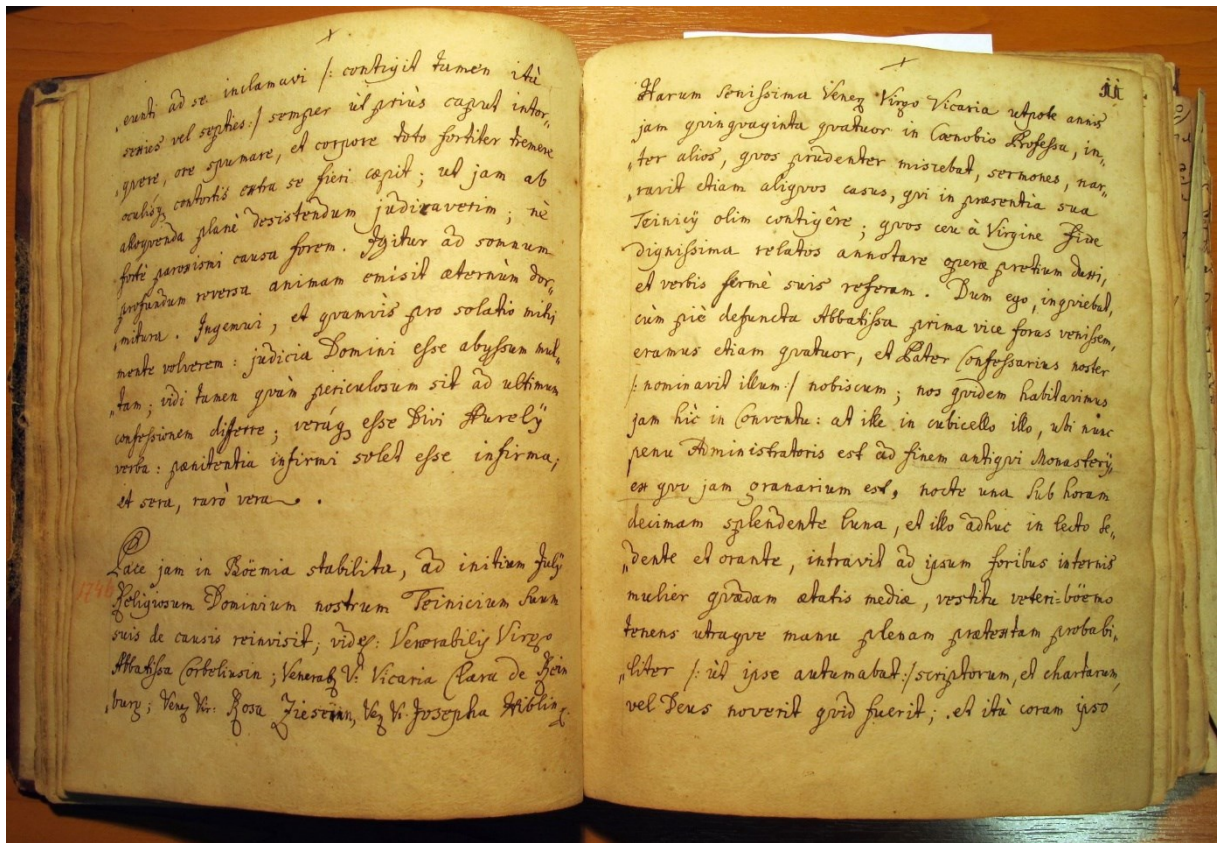 „eunti ad se inclamavi /: contigit tamen ità
sexies vel septies :/ semper ùt priùs caput intor„
„qvere, ore spumare, et corpore toto fortiter tremere
oculisq; contortis extra se fieri cæpit; ut jam ab
alloqvenda planè desistendum judicaverim; nè
fortè paroxismi causa forem. Igitur ad somnum
profundum reversa animam emisit æternùm dor„
„mitura. Ingemui, et qvamvìs pro solatio mihi
mente volverem: judicia Domini esse abyssum mul„
„tam; vidi tamen qvàm periculosum sit ad ultimum
confessionem differre; veráq; esse Divi Aurelÿ
verba: pænitentia infirmi solet esse infirma;
et sera, rarò vera.
Pace jam in Böemia stabilita, ad initium Julÿ
1748
Religiosum Dominium nostrum Teinicium suum
suis de causis reinvisit; videl: Venerabilis Virgo
Abbatissa Corbeliusin; Venerab V: Vicaria Clara de Rein
„burg; Ven Vir: Rosa Zieseinn, Ven Vi: Josepha Hiblin
11
Harum Senissima Vener Virgo Vicaria utpote annis
jam qvinqvaginta qvatuor in Cænobio Professa, in„
„ter alios, qvos prudenter miscebat, sermones, nar„
„ravit etiam aliqvos casus, qvi in præsentia sua
Teinicÿ olim contigêre; qvos ceu à Virgine Fide
dignissima relatos annotare operæ pretium duxi,
et verbis fermè suis referam. Dum ego, inqviebat,
cùm piè defuncta Abbatissa prima vice foras venissem,
eramus etiam qvatuor, et Pater Confessarius noster
/: nominavit illum :/ nobiscum; nos qvidem habitavimus
jam hìc in Conventu: at ille in cubicello illo, ubi nunc
penu Administratoris est ad finem antiqvi Monasterÿ,
ex qvo jam granarium est, nocte una sub horam
decimam splendente luna, et illo adhuc in lecto se„
„dente et orante, intravit ad ipsum foribus internis
mulier qvædam ætatis mediæ, vestitu veteri=böemo
tenens utraqve manu plenam prætextam probabi„
„liter /: ùt ipse autumabat :/ scriptorum, et chartarum,
vel Deus noverit qvid fuerit; et ità coram ipso